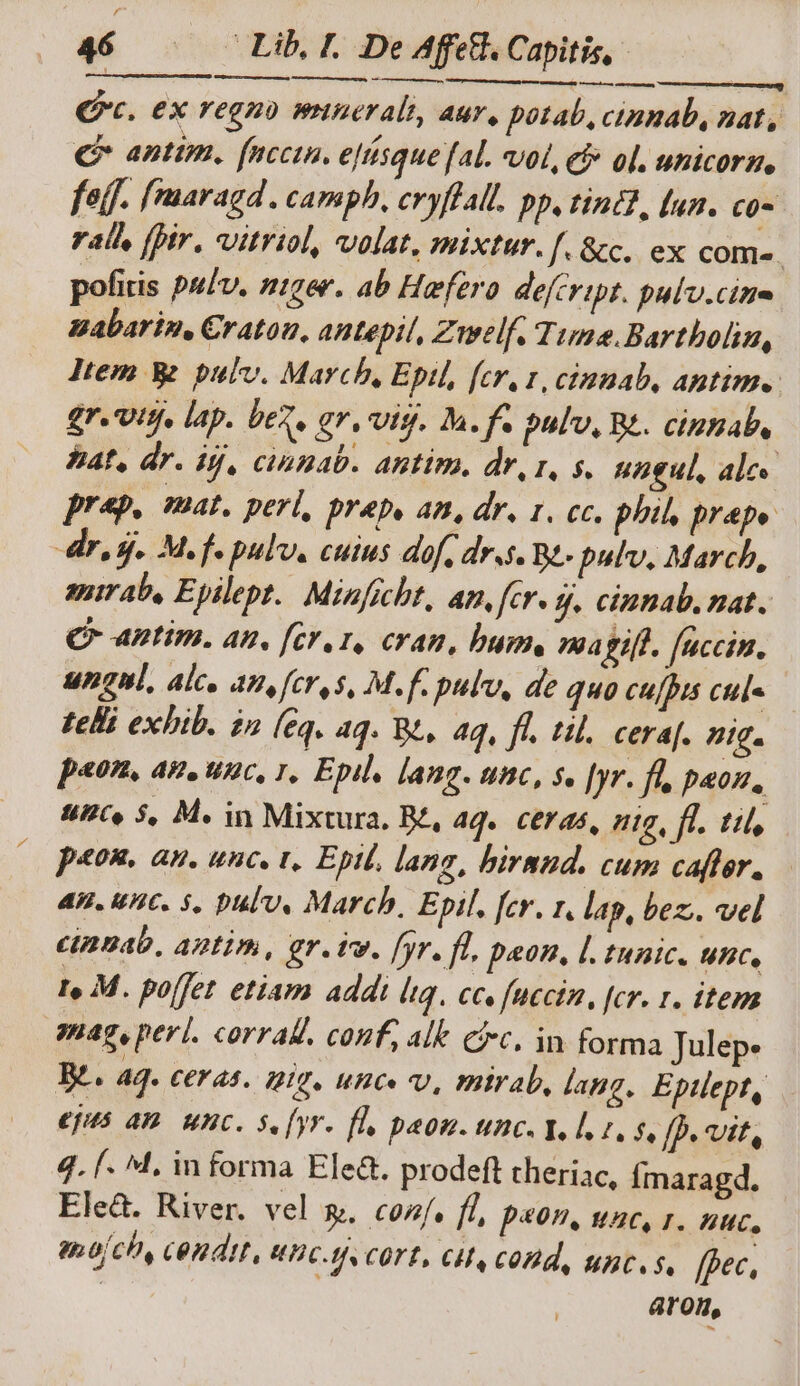 46 Lib. I. De Affect. Capitis,
&c. ex regno munerali, aur. potab, cinnab, nat,
& antim. ſuccin. ejúsque ſal. vol, & ol. unicorn.
foſſ. ſmaragd. camph, cryſtall. pp, tinct, lun. co-
rall, ſpir. vitriol, volat. mixtur. ſ. &c. ex com-
poſitis pulv. niger. ab Hœfero deſcript. pulv. cin-
nabarin, Craton, antepil, Zwelf. Timæ. Bartholin,
Item ℞ pulv. March, Epil, ſcr, 1, cinnab, antim.
gr. vij. lap. bez. gr, vij. M. f. pulv, ℞. cinnab.
nat. dr. ij, cinnab. antim. dr, 1, s. ungul, alc.
præp, mat. perl, præp. an, dr. 1. cc. phil, præp.
dr, ij. M. f. pulv. cuius doſ, dr. s. ℞. pulv. March,
mirab, Epilept. Minſicht, an, ſcr. ij, cinnab. nat.
& antim. an. ſcr, 1, cran, hum, magiſt. ſuccin.
ungul, alc. an, ſcr, s, M. f. pulv, de quo cuſpis cul-
telli exhib. in ſeq. aq. ℞, aq, fl. til. ceraſ. nig.
pæon, an. unc, 1, Epil. lang. unc, s. ſyr. fl, pæon,
unc, s, M. in Mixtura. ℞, aq. ceras, nig, fl. til,
pæon. an. unc. 1, Epil. lang, hirund. cum caſtor.
an. unc. s. pulv. March. Epil. ſcr. 1. lap, bez. vel
cinnab. antim, gr. iv. ſyr. fl. pæon, l. tunic. unc,
1. M. poſſet etiam addi liq. cc. ſuccin, ſcr. 1. item
mag. perl. corrall. conf, alk &c, in forma Julep.
℞. aq. ceras. nig. unc. v, mirab, lang. Epilept,
ejus an unc. s. ſyr. fl, pæon. unc. 1. l. 1. s. ſp. vit,
q. ſ. M, in forma Elect. prodeſt theriac, ſmaragd.
Elect. River. vel ℞. conſ. fl, pæon, unc, 1. nuc.
moſch, condit, unc. ij. cort, cit, cond, unc. s. ſpec,
aron,